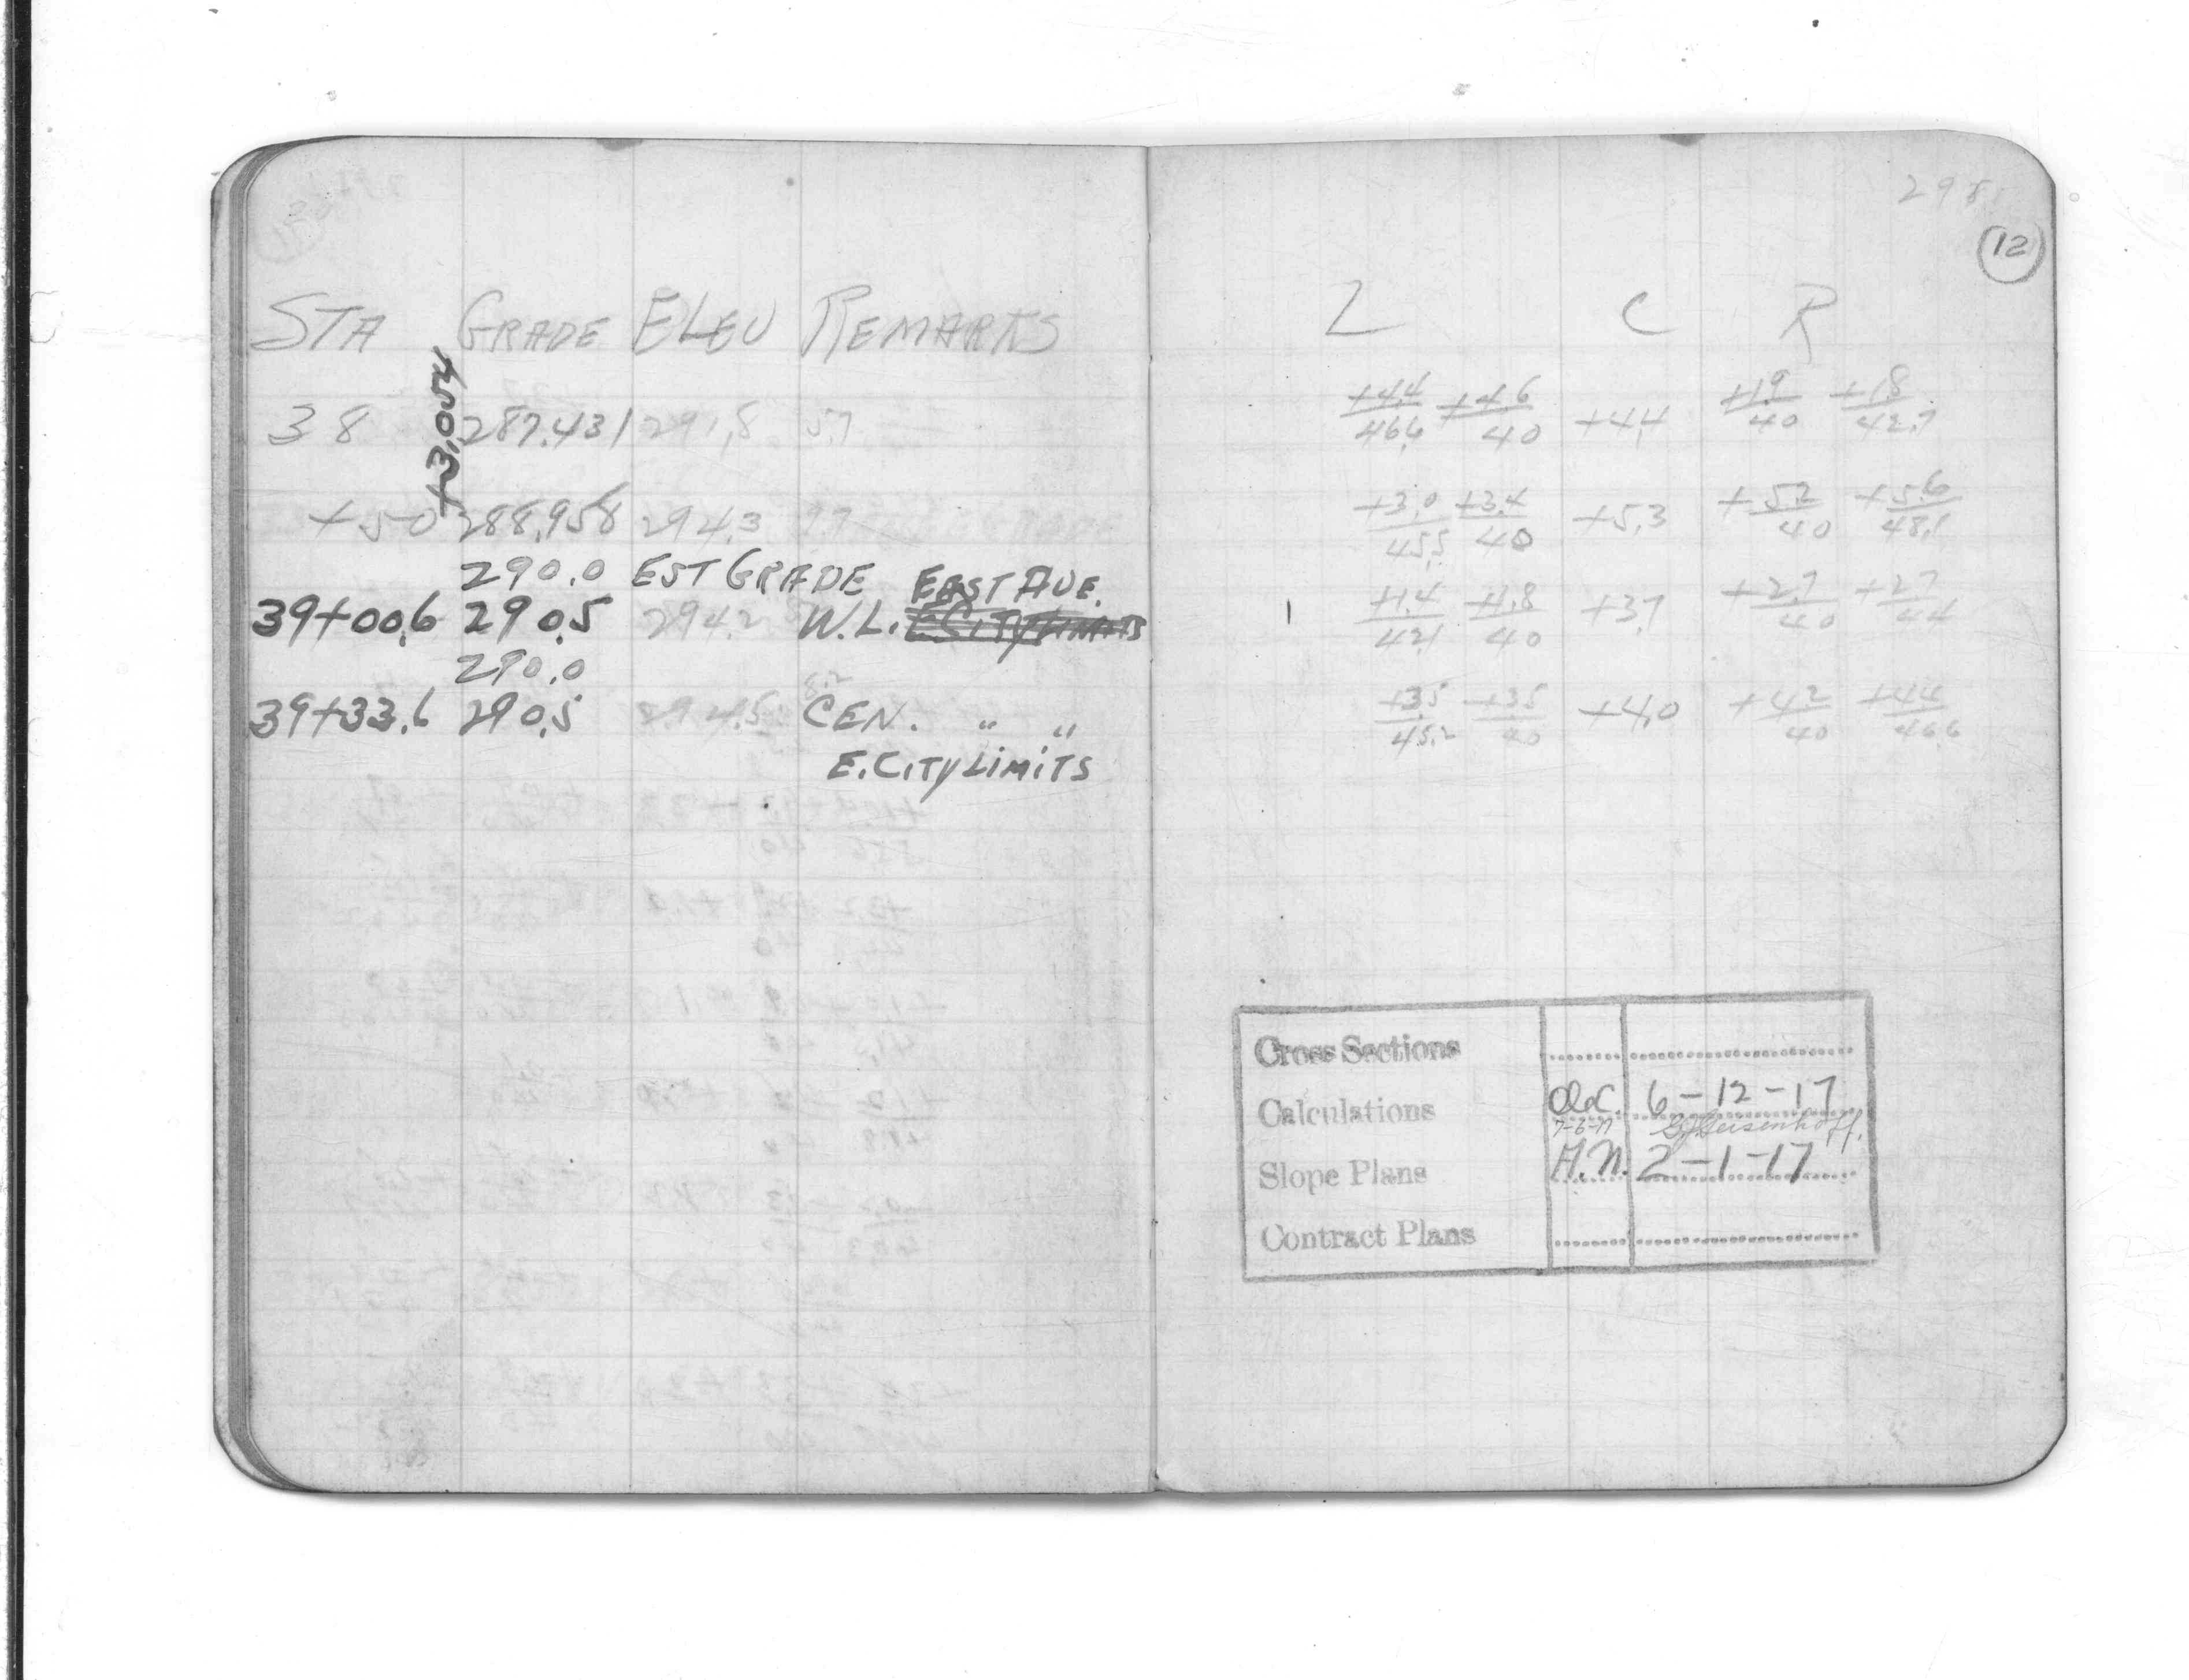 STA GRADE ELEV REMARKS
+3.054
38 287.431 291.8 5.7
+50 288.958 294.3 9.7
290.0 EST GRADE EAST AVE.
39+00.6 290.5 294.2 W.L. E. CITY LIMITS
290.0
8.2
39+33.6 290.5 294.5 CEN. " "
E. CITY LIMITS
298
12
L C R
+4.4 +4.6 +4.4 +1.9 +1.8
46.6 40 40 42.7
+3.0 +3.4 +5.3 +5.2 +5.6
45.5 40 40 48.1
+1.4 +1.8 +3.7 +2.7 +2.7
42.1 40 40 44
+3.5 +3.5 +4.0 +4.2 +4.4
45.2 40 40 46.6
Cross Sections
Calculations 6-12-17
7-6-17
Slope Plans A.N. 2-1-17
Contract Plans